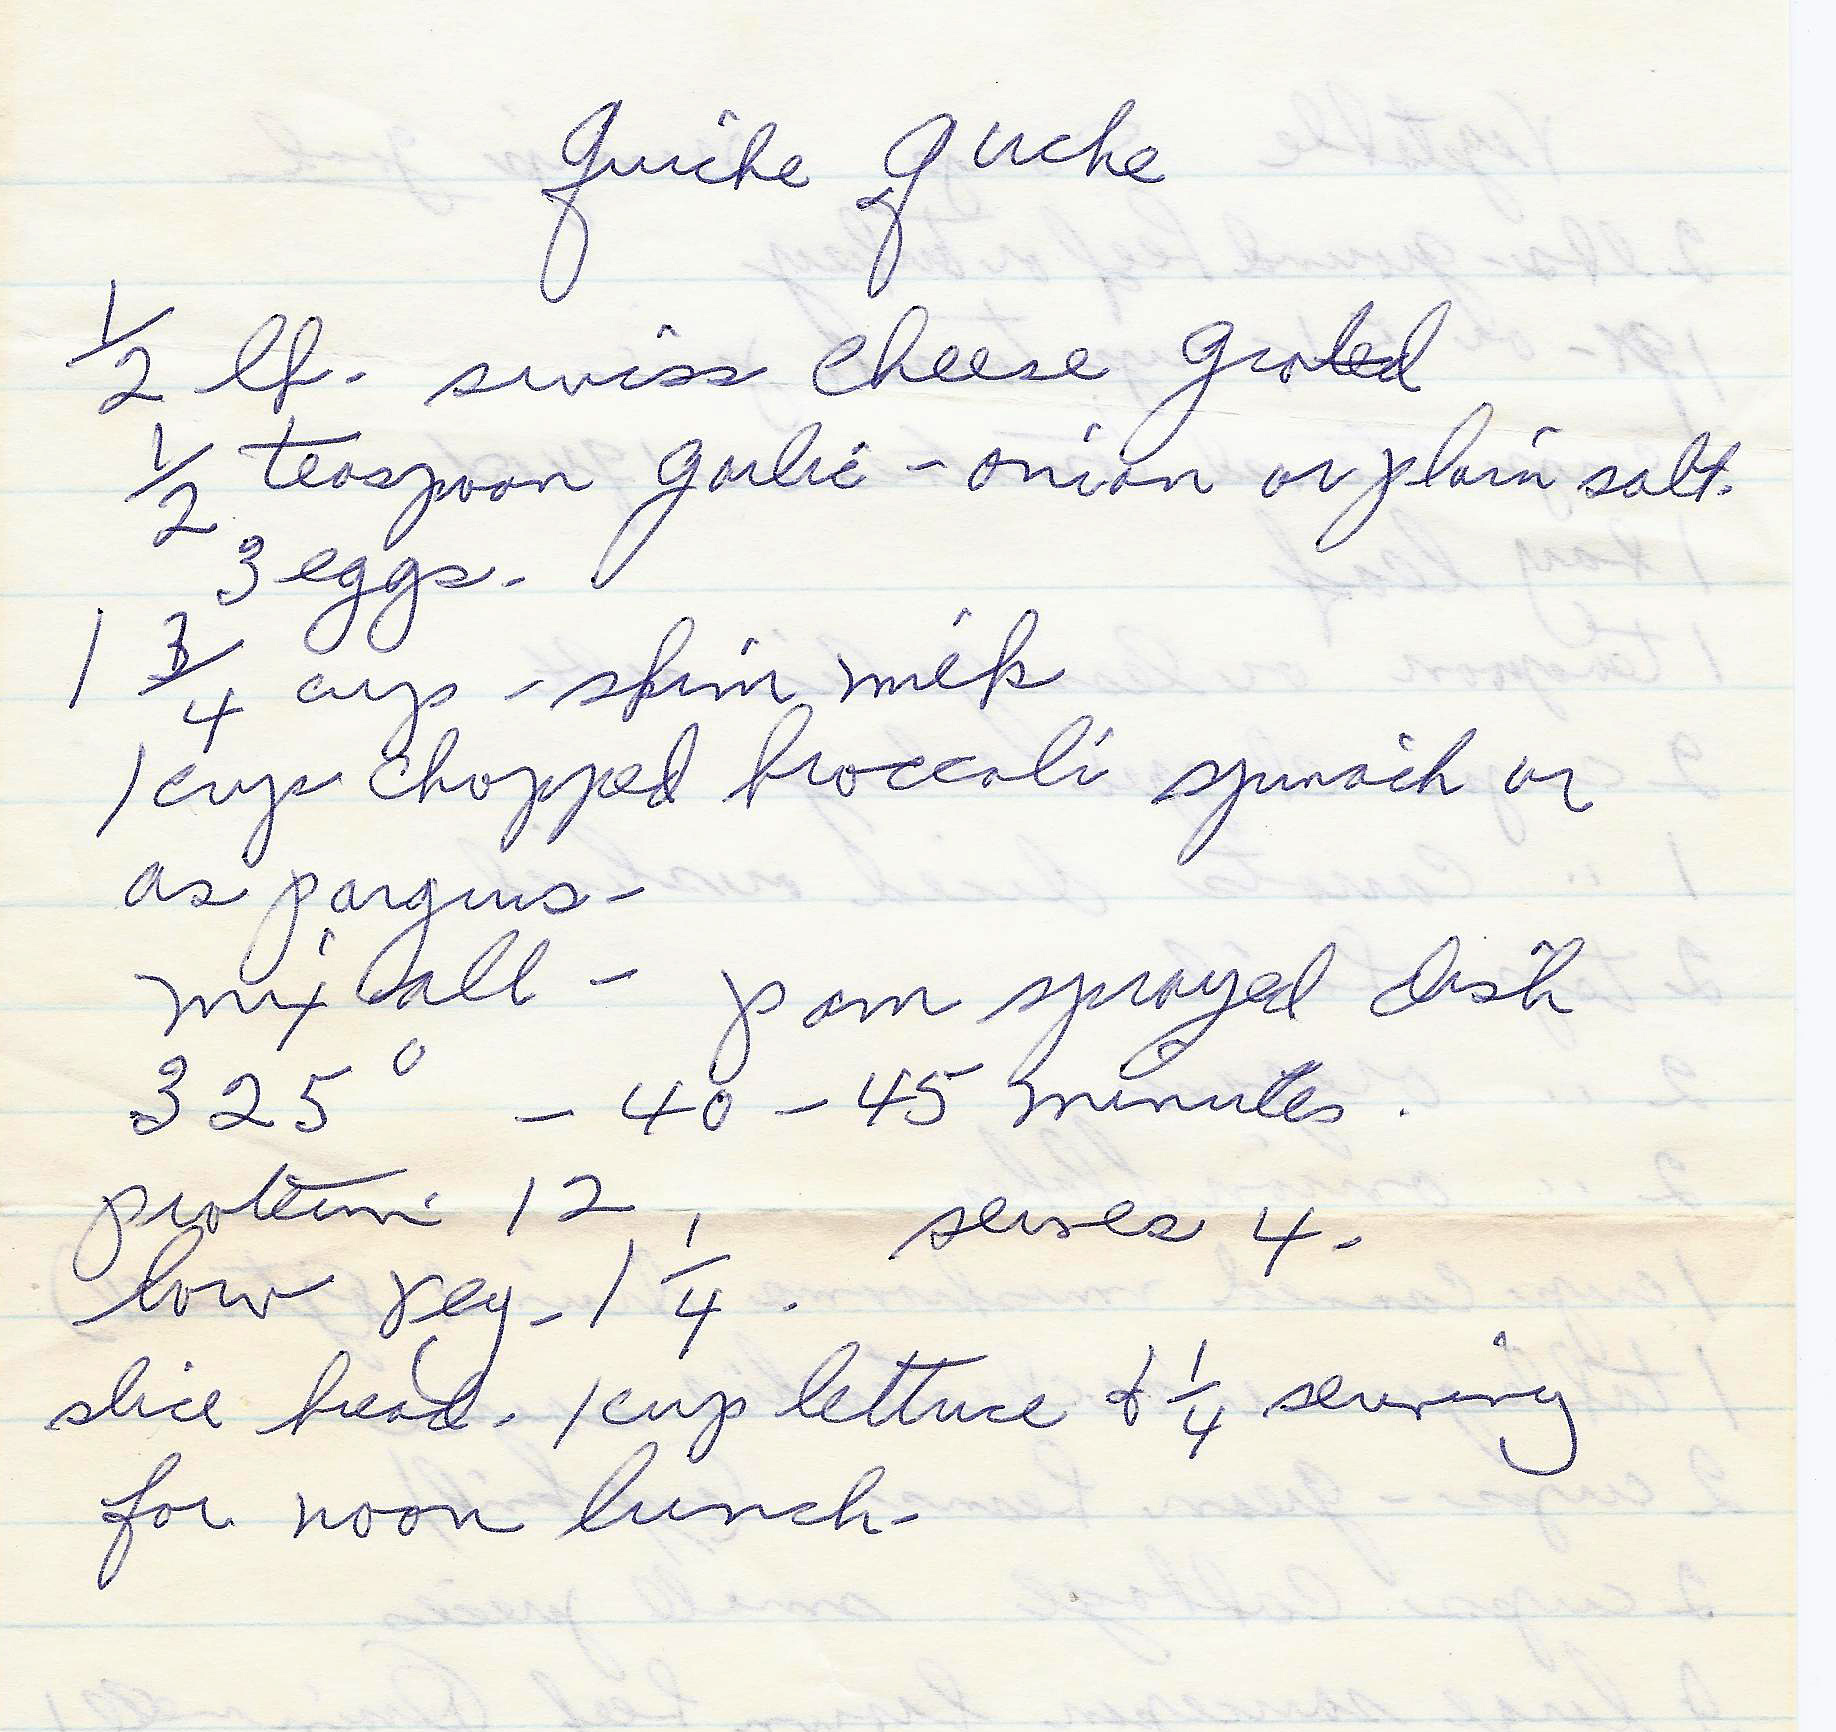 quiche quche
1/2 lb. swiss cheese grated
1/2 teaspoon garlic - onion or plain salt.
3 eggs.
1 3/4 cup - skim milk
1 cup chopped broccoli spinach or
as pargus -
mix all - pam sprayed dish
325° - 40 - 45 minutes.
protein 12 serves 4.
low veg - 1 1/4.
slice bread. 1 cup lettuce & 1/4 serving
for noon lunch.